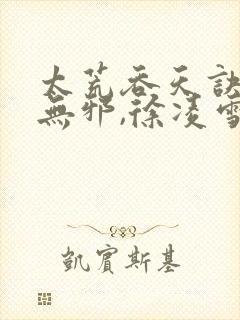 太荒吞天訣
無邪,徐凌雪
凱賓斯基